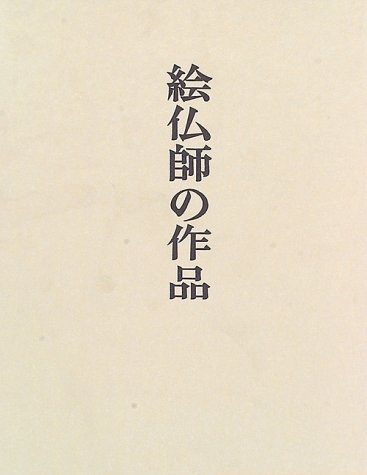 絵仏師の作品